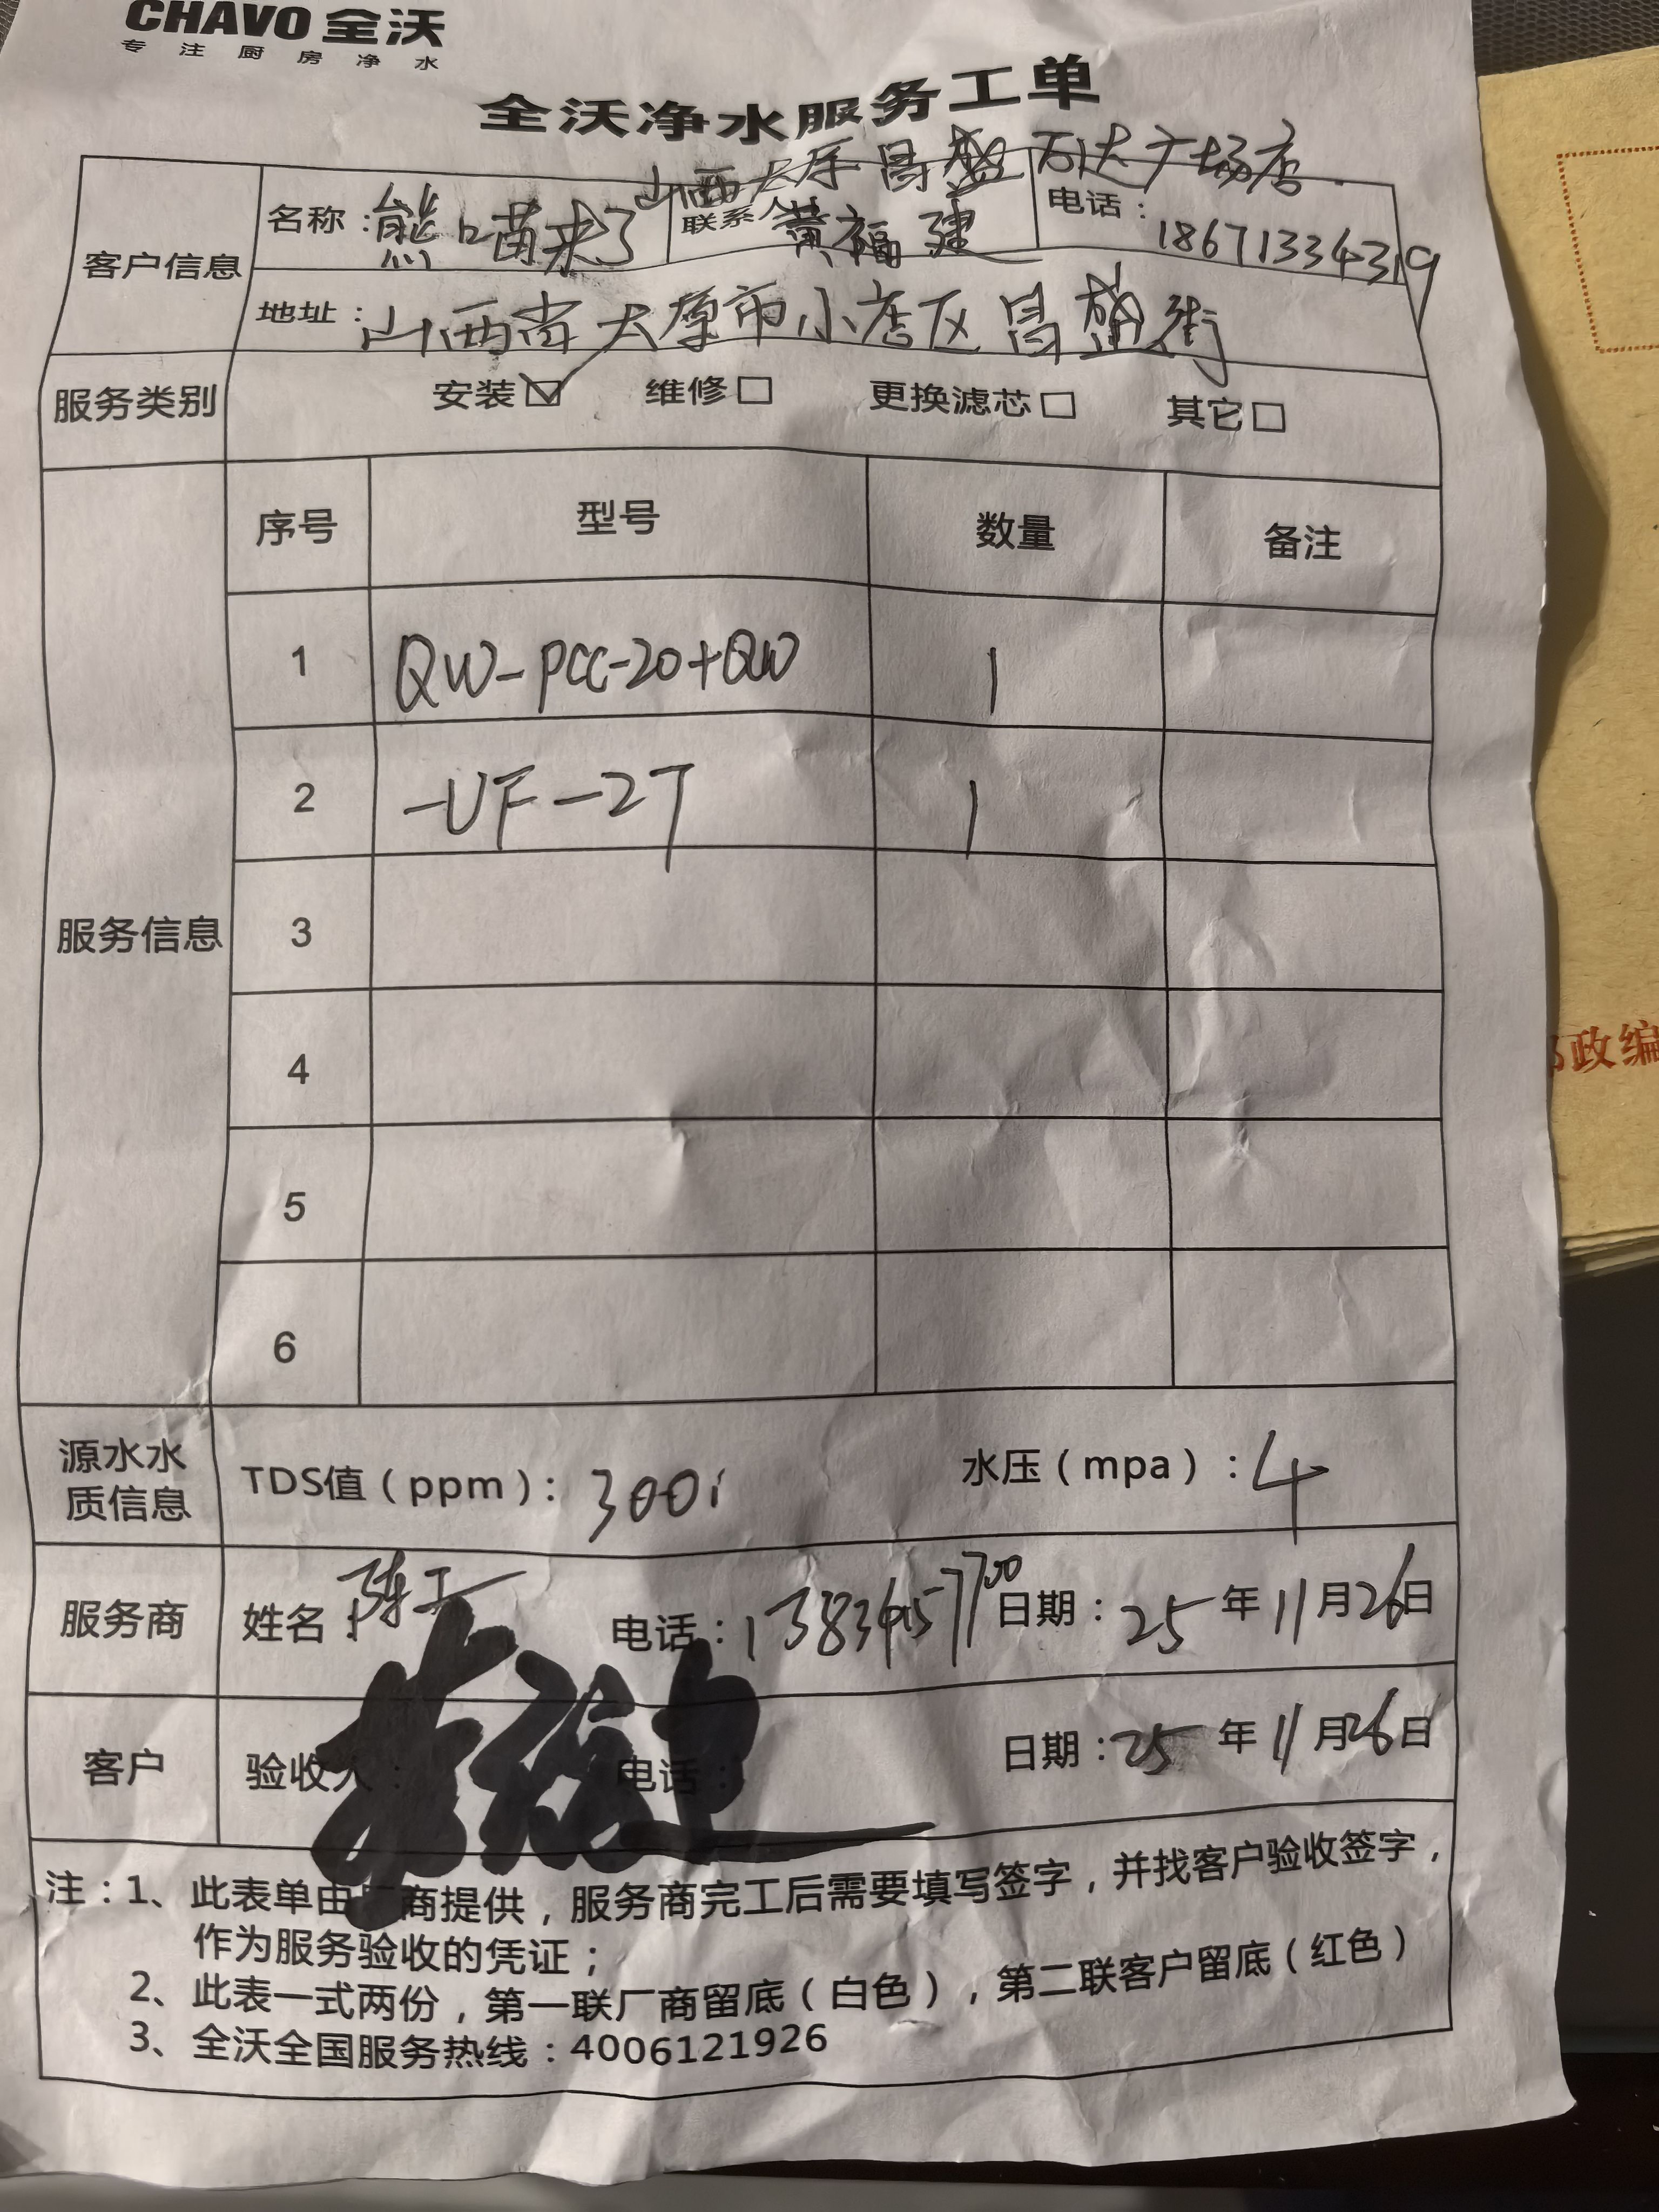 CHAVO 全沃
专注厨房净水
全沃净水服务工单
山西太原昌盛万达广场店
客户信息
名称：熊喵来了 联系人 黄福建 电话：18671334319
地址：山西省太原市小店区昌盛街
服务类别 安装☑ 维修□ 更换滤芯□ 其它□
服务信息
序号 型号 数量 备注
1 QW-PCC-20+QW 1
2 -UF-2T 1
3
4
5
6
源水水质信息 TDS值（ppm）：300 水压（mpa）：4
服务商 姓名：陈工 电话： 日期：25年11月26日
客户 验收人： 电话： 日期：25年11月26日
注：1、此表单由厂商提供，服务商完工后需要填写签字，并找客户验收签字，
作为服务验收的凭证；
2、此表一式两份，第一联厂商留底（白色），第二联客户留底（红色）
3、全沃全国服务热线：4006121926
政编